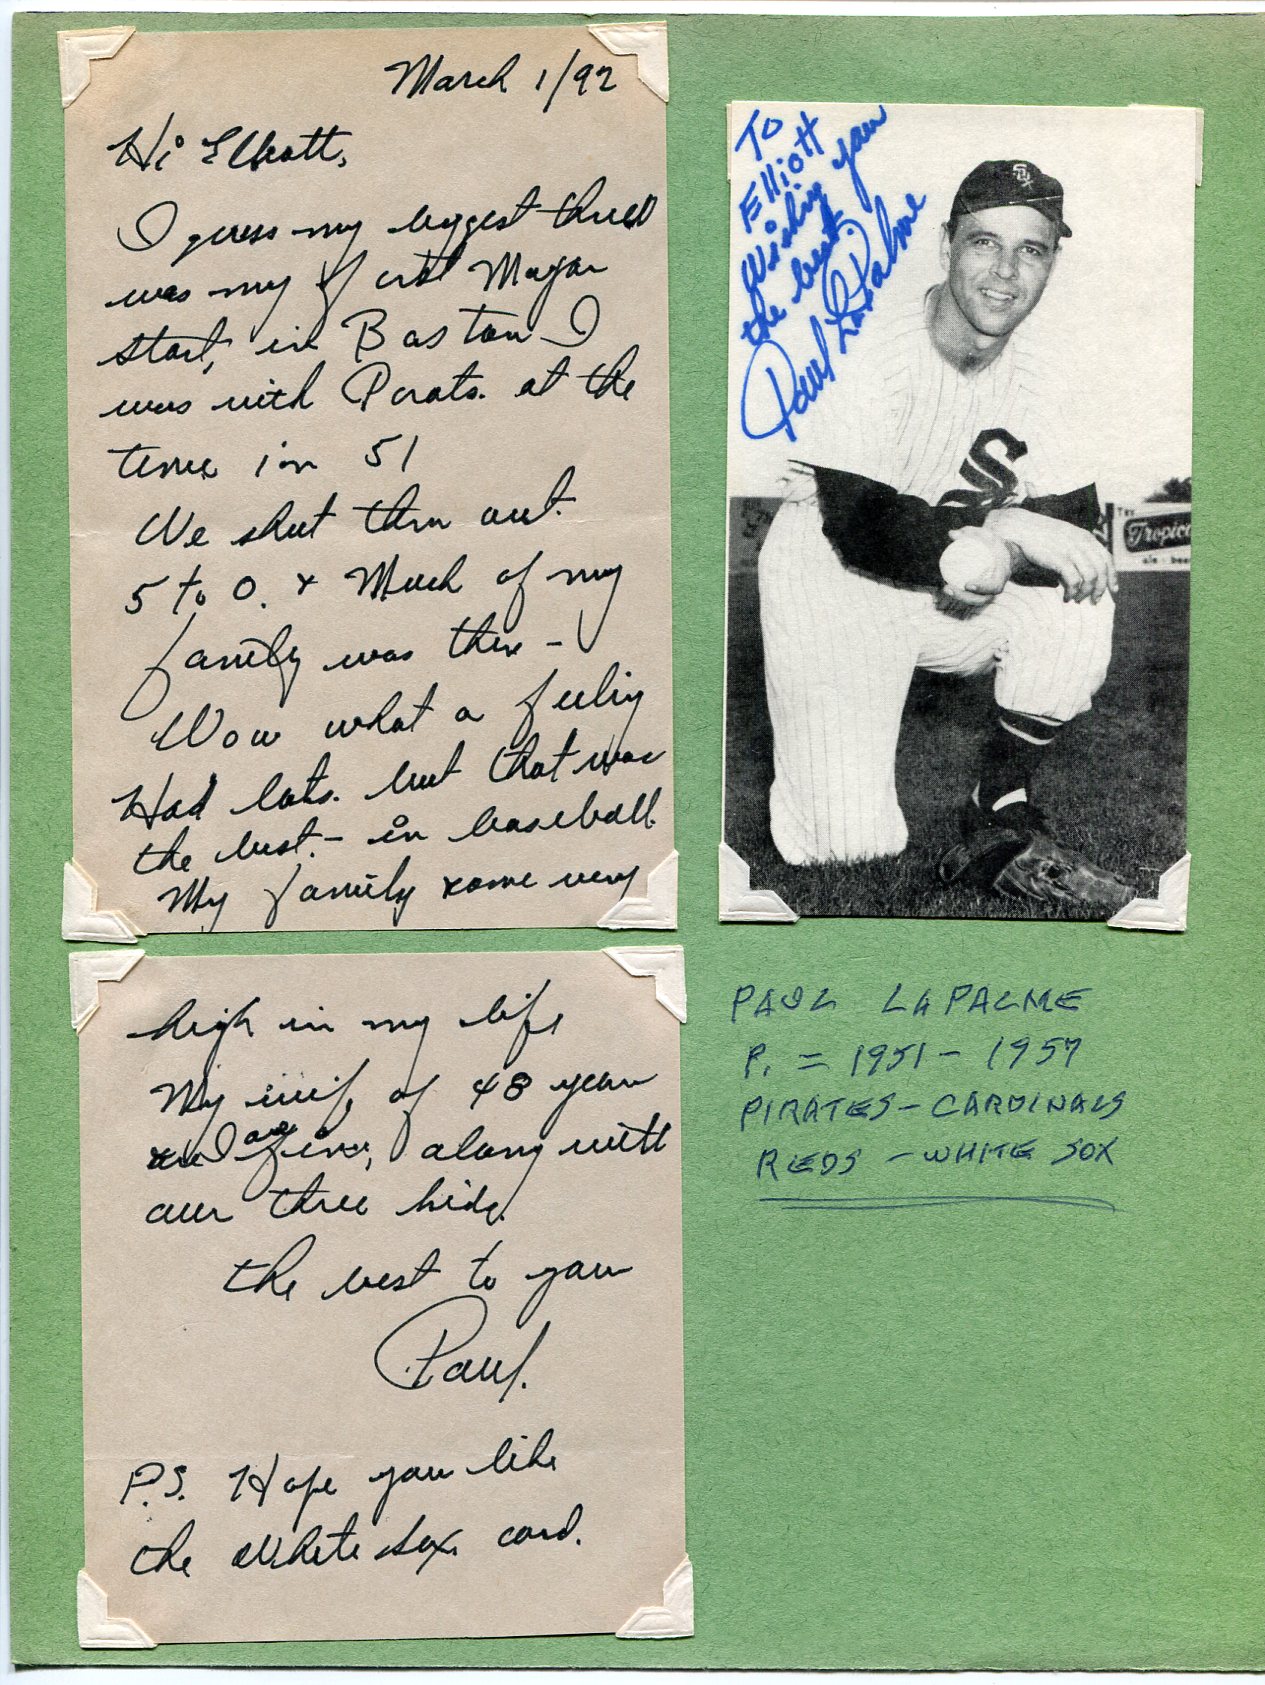 March 1/92
Hi Elliott,
I guess my biggest thrill
was my first Major
start, in Boston I
was with Pirats. at the
time in 51
We shut them out.
5 to 0. & Much of my
family was there -
Wow what a feeling
Had lots. but that was
the best. - in baseball
My family rome very
high in my life
My wife of 48 years
and I are fine, along with
our three kids.
the best to you
Paul.
P.S. Hope you like
the White Sox card.
To
Elliott
Wishing you
the best.
Paul LaPalme
SOX
S
Tropica
PAUL LAPALME
P. = 1951 - 1957
PIRATES - CARDINALS
REDS - WHITE SOX